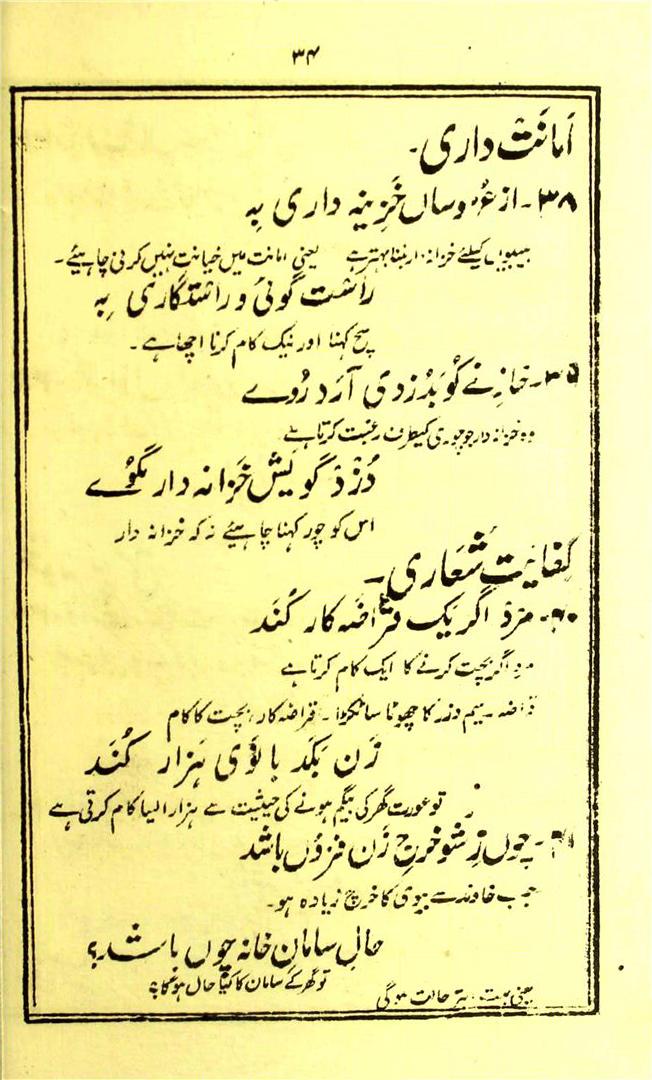 ۳۴
اَمانَت داری۔
۳۸۔ از عُروساں خَزِینہ داری بِہ
بیبیوں کیلئے خزانہ دار بننا بہتر ہے یعنی امانت میں خیانت نہیں کرنی چاہیئے۔
راست گوئی و راستگاری بِہ
سچ کہنا اور نیک کام کرنا اچھا ہے۔
۳۹۔ خازنے کُو بَدُزدی آرَد رُوے
وہ خزانہ دار جو چوری کیطرف رغبت کرتا ہے
دُزْد گویَش خَزانہ دار مگوے
اس کو چور کہنا چاہیئے نہ کہ خزانہ دار
کِفایَت شَعاری۔
۴۰۔ مرد اگر یک قراضَہ کار کُنَد
مرد اگر بچت کرنے کا ایک کام کرتا ہے
قراضہ۔ سیم و زر کا چھوٹا سا ٹکڑا۔ قراضہ کار، بچت کا کام
زَن بکَد بانُوی ہَزار کُنَد
تو عورت گھر کی بیگم ہونے کی حیثیت سے ہزار ایسا کام کرتی ہے
۴۱۔ چوں زِ شو خرجِ زَن فزُوں باشد
جب خاوند سے بیوی کا خرچ زیادہ ہو۔
حالِ سامانِ خانہ چوں باشد؟
تو گھر کے سامان کا کیا حال ہوگا؟
یعنی بہت بتر حالت ہوگی